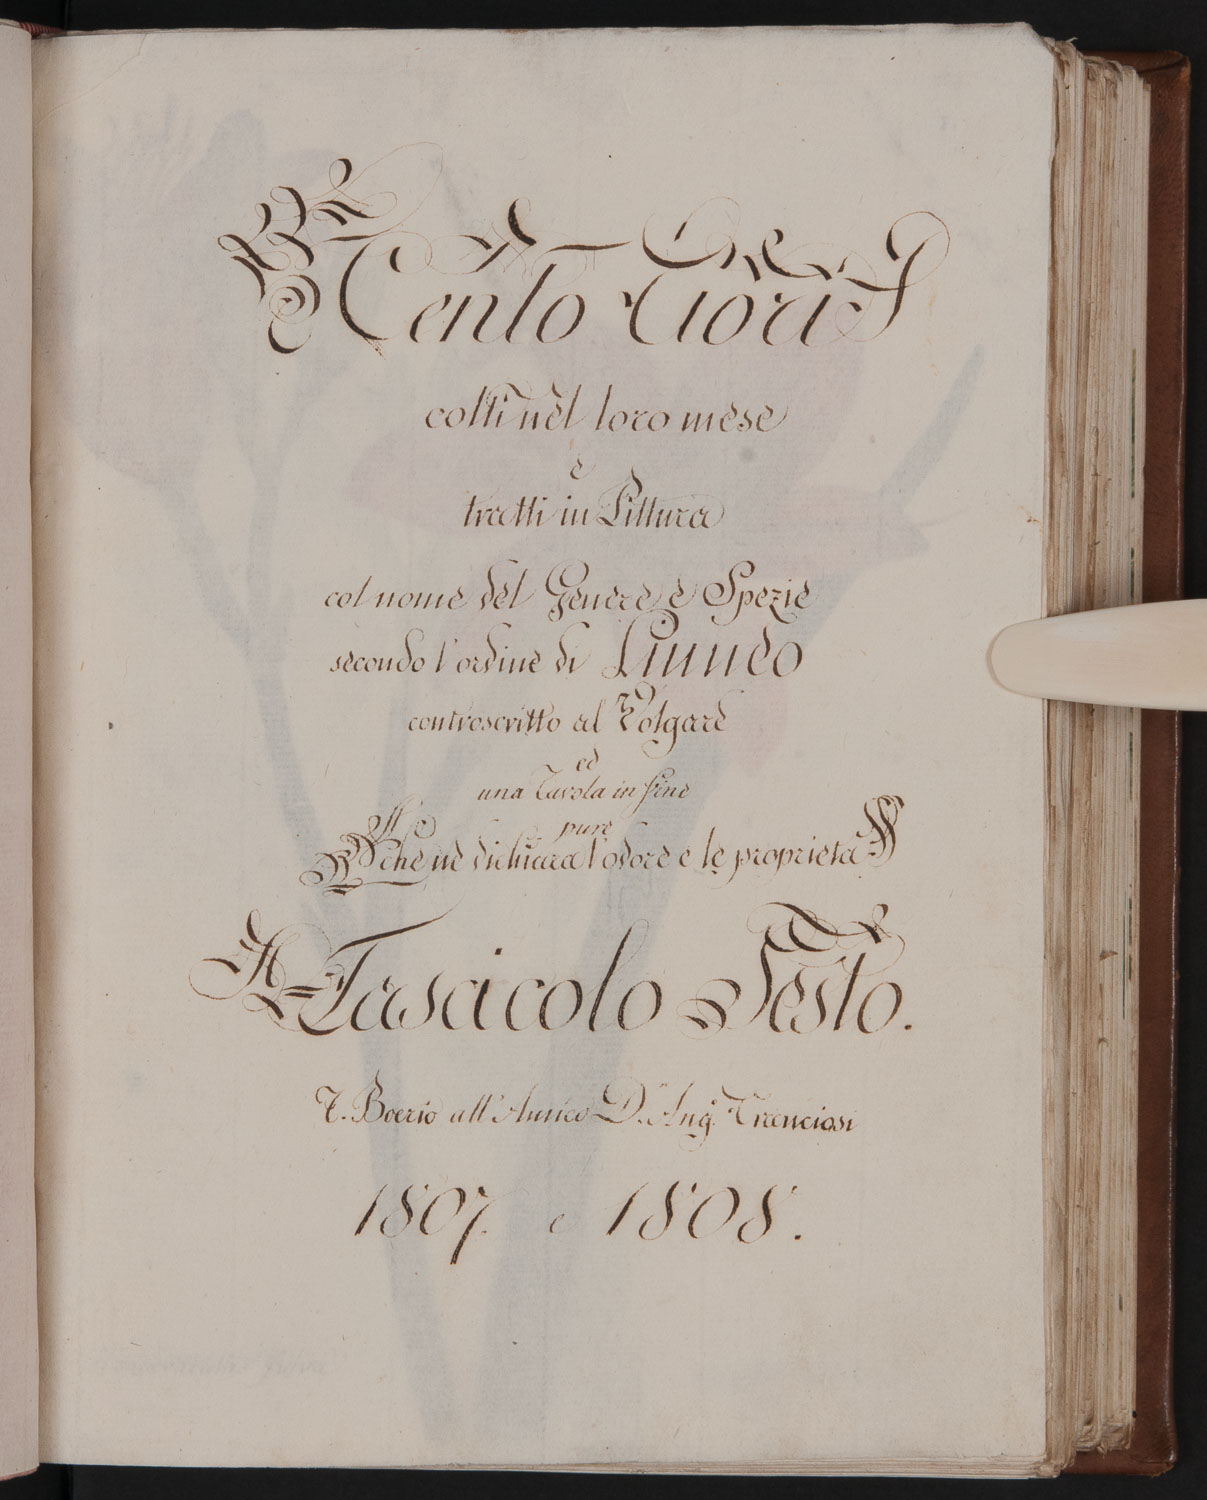 Cento Fiori
colti nel loro mese
e
tratti in Pittura
col nome del Genere e Spezie
secondo l'ordine di Linneo
controscritto al Volgare
ed
una Tavola in fine
pure
che ne dichiara l'odore e le proprietà
Fascicolo Sesto.
F. Boerio all'Amico D.r Ang.o
1807. e 1808.